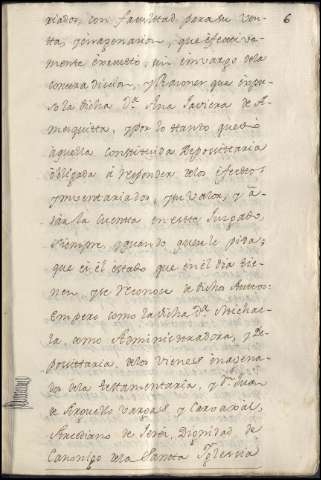 6
riador, con facultad, para su ven-
ta, y enagenacion, que efectiva-
mente executò, sin envargo de la
contradicion, y Razones que expu-
so la dicha D.ª Ana Xaviera de A-
mezquitta, y por lo tanto quedò
aquella constituida Deposittaria
obligada à responder de los efectos
ynventariados, y su valor, y à
dar la cuenta en este Juzgado,
siempre, y quando, que se le pida;
que es el estado que en el dia tie-
nen, y se reconoze de dichos Auttos:
Empero como la dicha D.ª Michae-
la como Administradora, y De-
posittaria, de los vienes enagena-
dos de la testamentaria, y D.n Juan
de Arguello Vargas, y Carvaxal,
Arcediano de Dignidad de
Canonigo de la Santa Yglesia